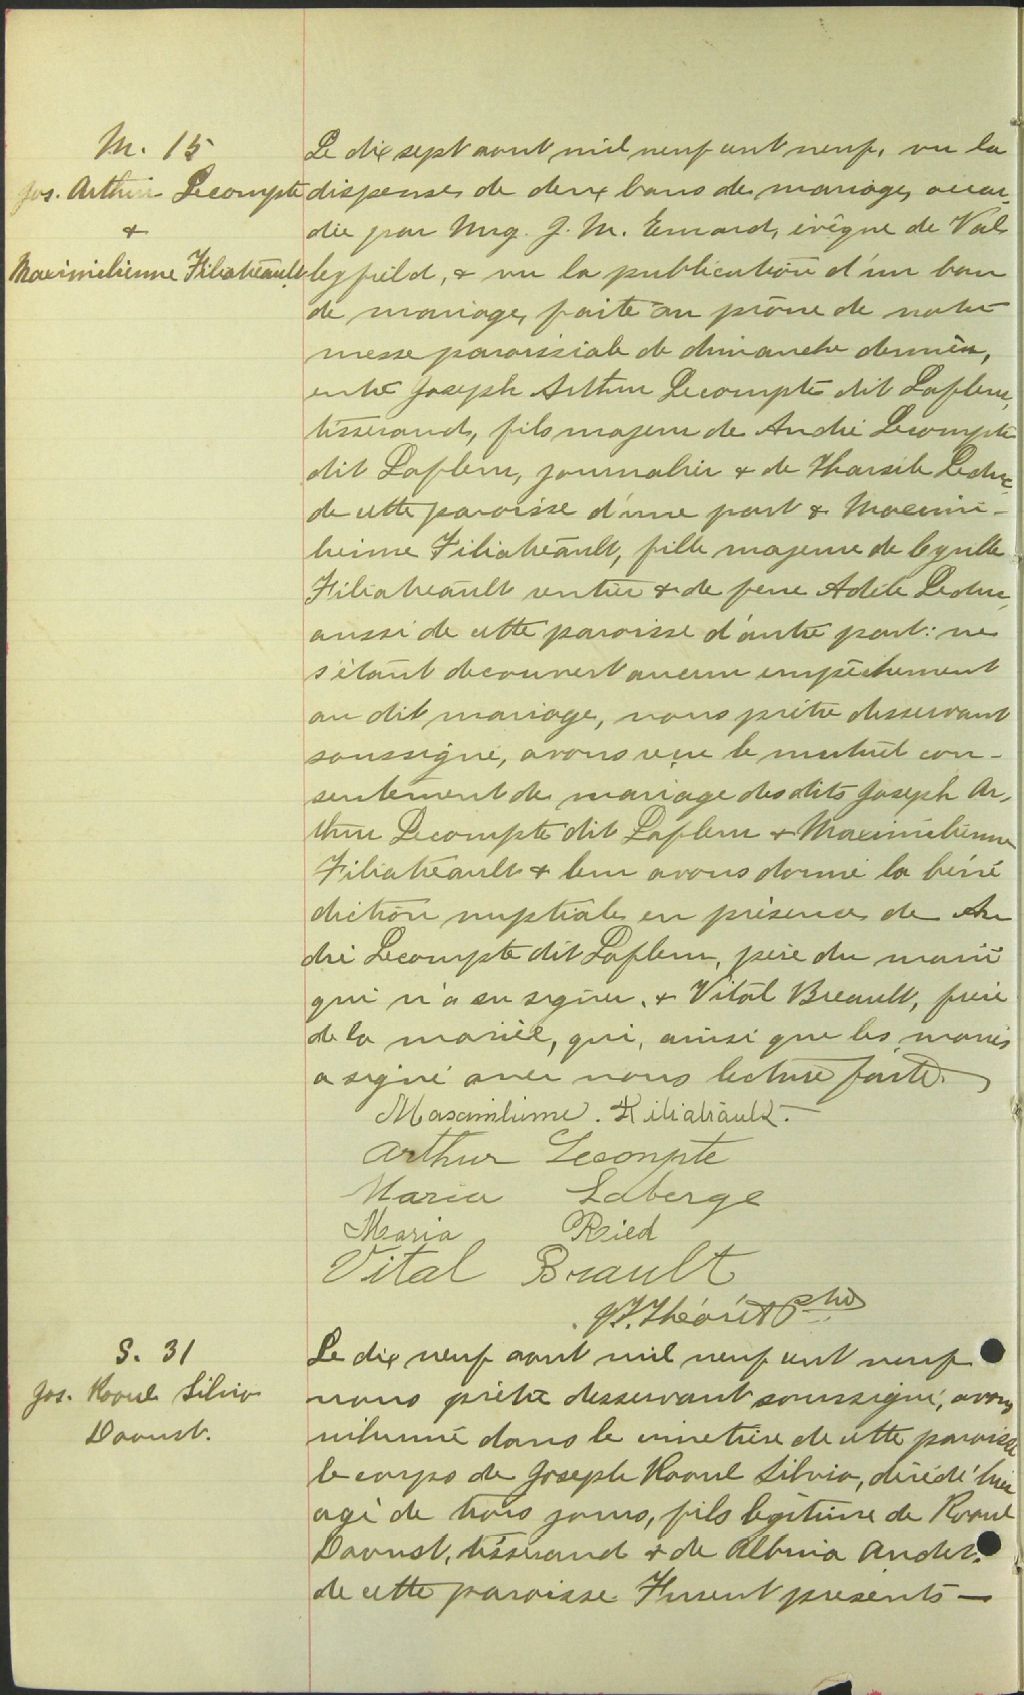 M. 15
Jos. Arthur Lecompte
&
Maximilienne Filiatreault
Le dix sept aout mil neuf cent neuf, vu la
dispense de deux bans de mariage, accor-
dée par Mrg. J. M. Emard, évêque de Val
leyfield, & vu la publication d'un ban
de mariage, faite au prône de notre
messe paroissiale de dimanche dernier,
entre Joseph Arthur Lecompte dit Lafleur,
tisserand, fils majeur de André Lecompte
dit Lafleur, journalier & de Tharsile Leduc
de cette paroisse d'une part & Maximi-
lienne Filiatreault, fille majeure de Cyrille
Filiatreault rentier & de feue Adèle Leduc,
aussi de cette paroisse d'autre part: ne
s'étant decouvert aucun empêchement
au dit mariage, nous prêtre desservant
soussigné, avons reçu le mutuel con-
sentement de mariage des dits Joseph Ar-
thur Lecompte dit Lafleur & Maximilienne
Filiatreault & leur avons donné la béné
diction nuptiale en présence de An
dré Lecompte dit Lafleur, père du marié
qui n'a su signer, & Vital Breault, frère
de la mariée, qui, ainsi que les mariés
a signé avec nous lecture faite.
Maxamilienne. Filiatrault.
Arthur Lecompte
Maria Laberge
Maria Ried
Vital Brault
J. F. Théorêt Ptre
S. 31
Jos. Raoul Silvio
Daoust.
Le dix neuf aout mil neuf cent neuf
nous prêtre desservant soussigné, avons
inhumé dans le cimetière de cette paroisse
le corps de Joseph Raoul Silvio, décédé hier
agé de trois jours, fils légitime de Raoul
Daoust, tisserand & de Albina
de cette paroisse Furent présents —